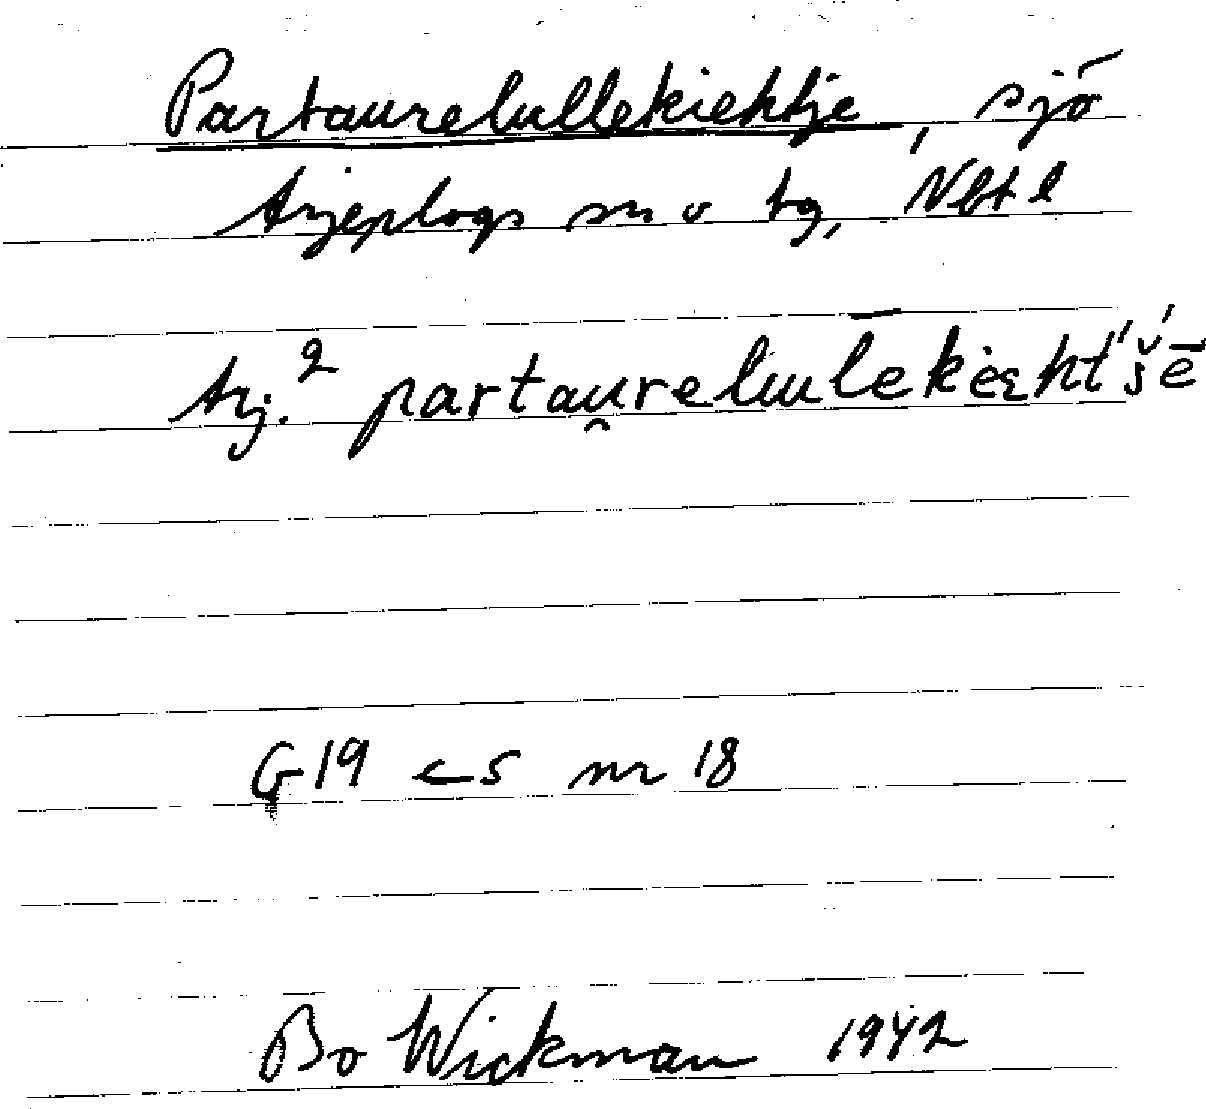 Partaurelullekiehtje, sjö
Arjeplogs sn o tg, Nbt l
Arj.² partau̯relulēkiεht́š́ē
G19 c 5 nr 18
Bo Wickman 1942